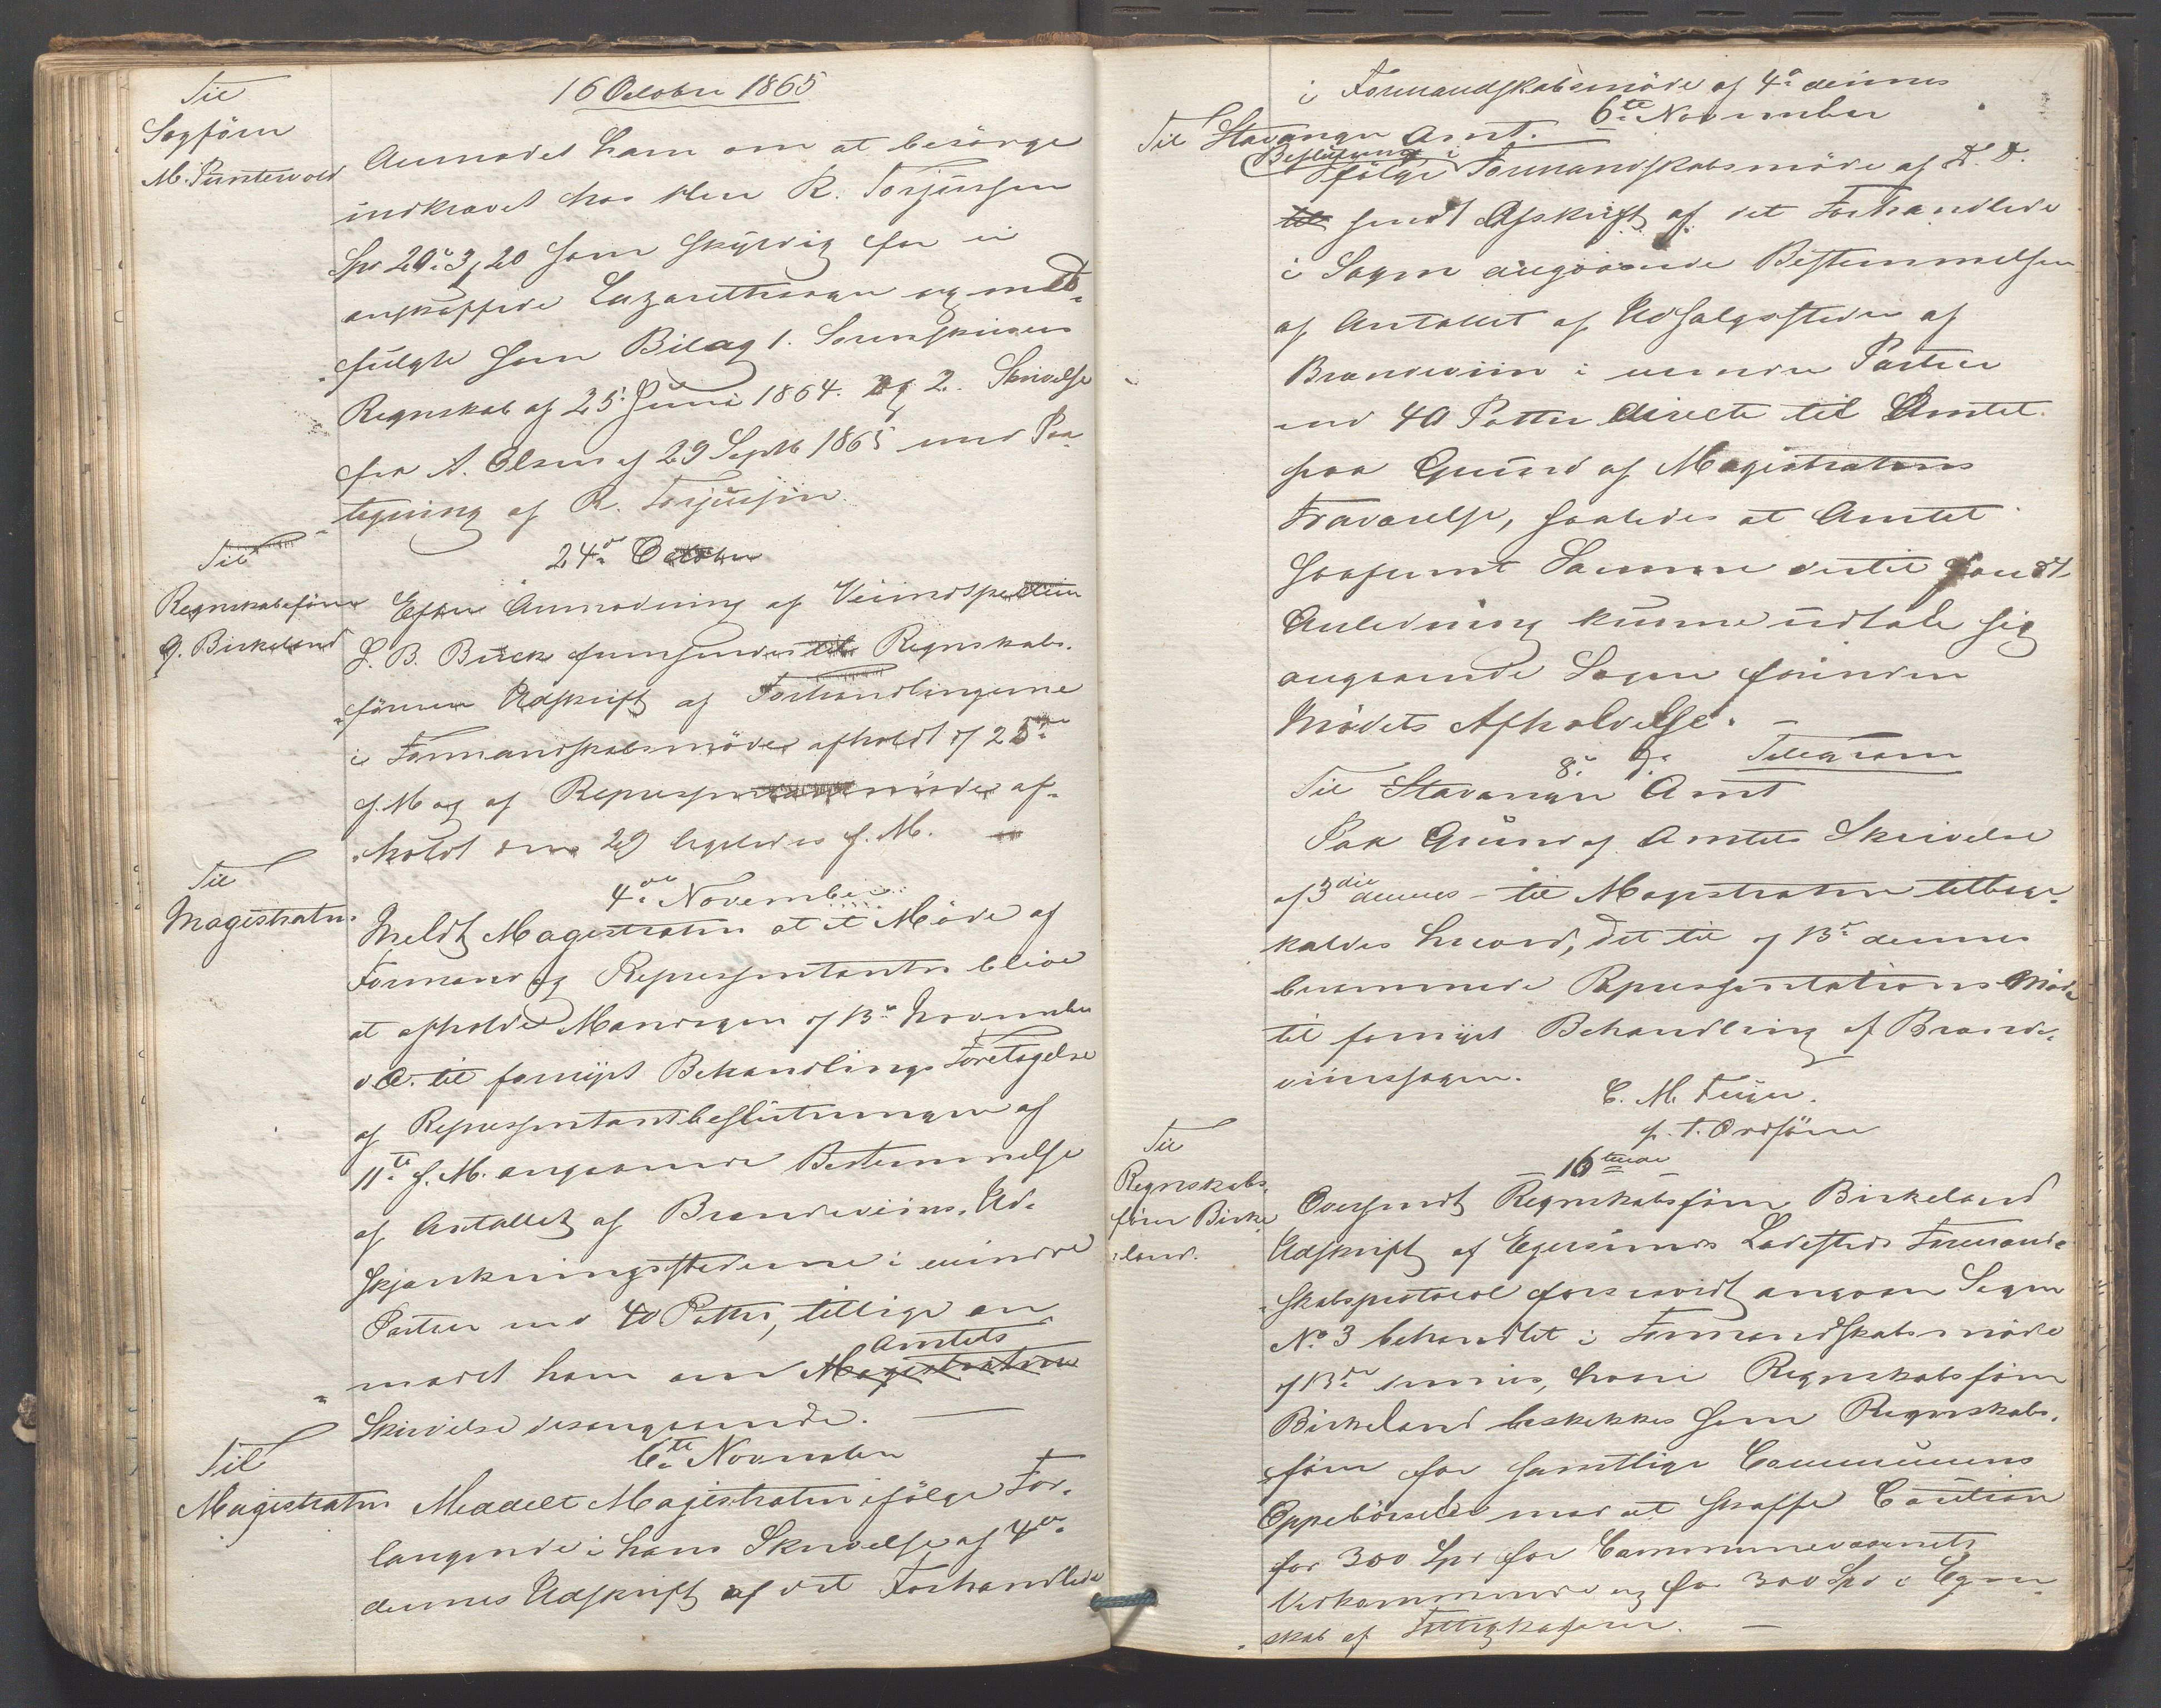 16 Octobr 1865
Til
Sagförer
M. Puntervold
Anmodet ham om at besörge
indkravet hos Herr R. Torjussen
Spd 20. 3, 20 som skyldig for ei
anskaffede Lazarethsager og med-
fulgte som Bilag 1. Sorenskriverens
Regnskab af 25. Juni 1864. og 2. Skrivelse
fra A. Olsen af 29 Septb 1865 med Paa
tegning af R. Torjussen.
24de October
Til
Regnskabsförer
G. Birkeland
Efter Anmodning af Veiinspecteur
L. B. Buck fremsendes til Regnskabs-
föreren Udskrift af Forhandlingerne
i Formandskabsmöder afholdt d 25de
f. M og af Repræsentantmöder af-
holdt den 29 ligeledes f. M.
4de November
Til
Magistraten
Meldt Magistraten at et Möde af
Formænd og Repræsentanter bliver
at afholde Mandagen d 13de November
d. A. til fornyet Behandlings Foretagelse
af Repræsentantbeslutningen af
11te f. M. angaaende Bestemmelse
af Antallet af Brændeviins-Ud-
skjænkningsstederne i mindre
Partier end 40 Potter, tillige an
modet ham om Magistratens Amtets
Skrivelse desangaaende.
6te November
Til
Magistraten
Meddelt Magistraten ifölge For-
langende i hans Skrivelse af 4de
dennes Udskrift af det Forhandlede
i Formandskabsmöde af 4de dennes
6te November
Til Stavanger Amt.
Beslutning i
fölge Formandskabsmöde af D. D.
til sendt Afskrift af det Forhandlede
i Sagen angaaende Bestemmelsen
af Antallet af Udsalgssteder af
Brændeviin i mindre Partier
end 40 Potter directe til Amtet
paa Grund af Magistratens
Fraværelse, saaledes at Amtet
saafremt Samme dertil fandt
Anledning kunne udtale sig
angaaende Sagen forinden
Mödets Afholdelse. –
8de ds Telegram
Til Stavanger Amt
Paa Grund af Amtets Skrivelse
af 3die dennes – til Magistraten tilbage-
kaldes herved, det til d 13de dennes
berammede Repræsentations Möde
til fornyet Behandling af Brænde-
viinssagen.
C. M. Feyer.
p. t. Ordförer
16tende
Til
Regnskabs-
förer Birke
land.
Oversendt Regnskabsförer Birkeland
Udskrift af Egersunds Ladesteds Formand-
skabsprotocol forsaavidt angaaer Sagen
No 3 behandlet i Formandskabsmöde
d 13de dennes, hvori Regnskabsförer
Birkeland beskikkes som Regnskabs-
förer for samtlige Communens
Oppebörseler mod at skaffe Caution
for 300 Spd for Communevæsenets
Vedkommende og for 300 Spd i Egen-
skab af Fattigkasserer. –